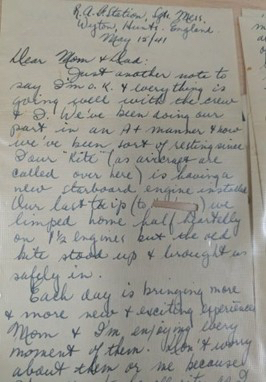 R.A.F. Station, Sgts. Mess.
Wyton, Hunts. England
May 15/41
Dear Mom & Dad:
Just another note to
say I'm O.K. & everything is
going well with the crew
& I. We've been doing our
part in an A+ manner & now
we've been sort of resting since
our "Kite" (as aircraft are
called over here) is having a
new starboard engine installed
Our last trip (to ) we
limped home half heartedly
on 1½ engines but the old
kite stood up & brought us
safely in.
Each day is bringing more
& more new & exciting experiences
Mom & I'm enjoying every
moment of them. Don't worry
about them or me because